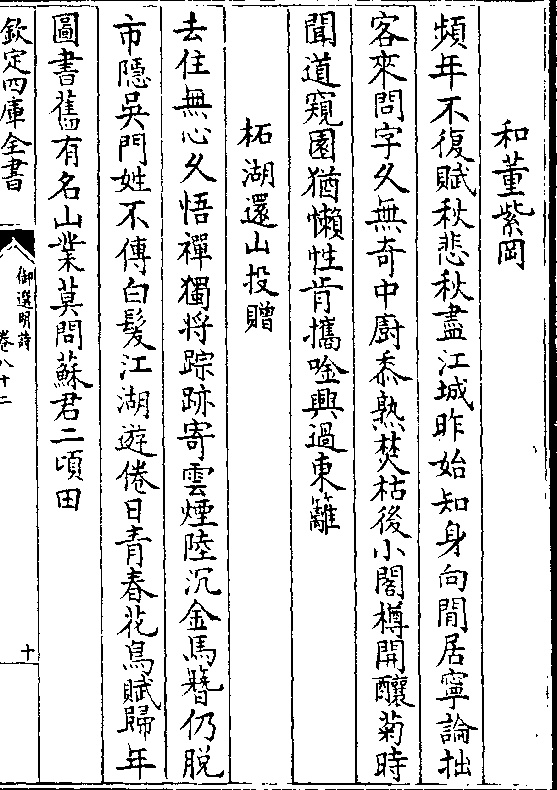 和董紫岡
頻年不復賦秋悲秋盡江城昨始知身向閒居寧論拙
客來問字久無奇中廚黍熟焚枯後小閣樽開釀菊時
聞道窺園猶懶性肯攜唫興過東籬
柘湖還山投贈
去住無心久悟禪獨將踪跡寄雲煙陸沉金馬簪仍脫
市隱吳門姓不傳白髮江湖遊倦日青春花鳥賦歸年
圖書舊有名山業莫問蘇君二頃田
欽定四庫全書
御選明詩
卷八十二
十